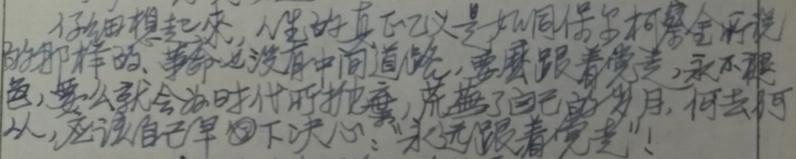 仔细想起来,人生的真正意义是如同保尔柯察金所说
的那样的、革命之没有中间道路,要么跟着党走,永不褪
色,要么就会为时代所抛弃,荒芜了自己的岁月.何去何
从,应该自己早下决心:"永远跟着党走"!